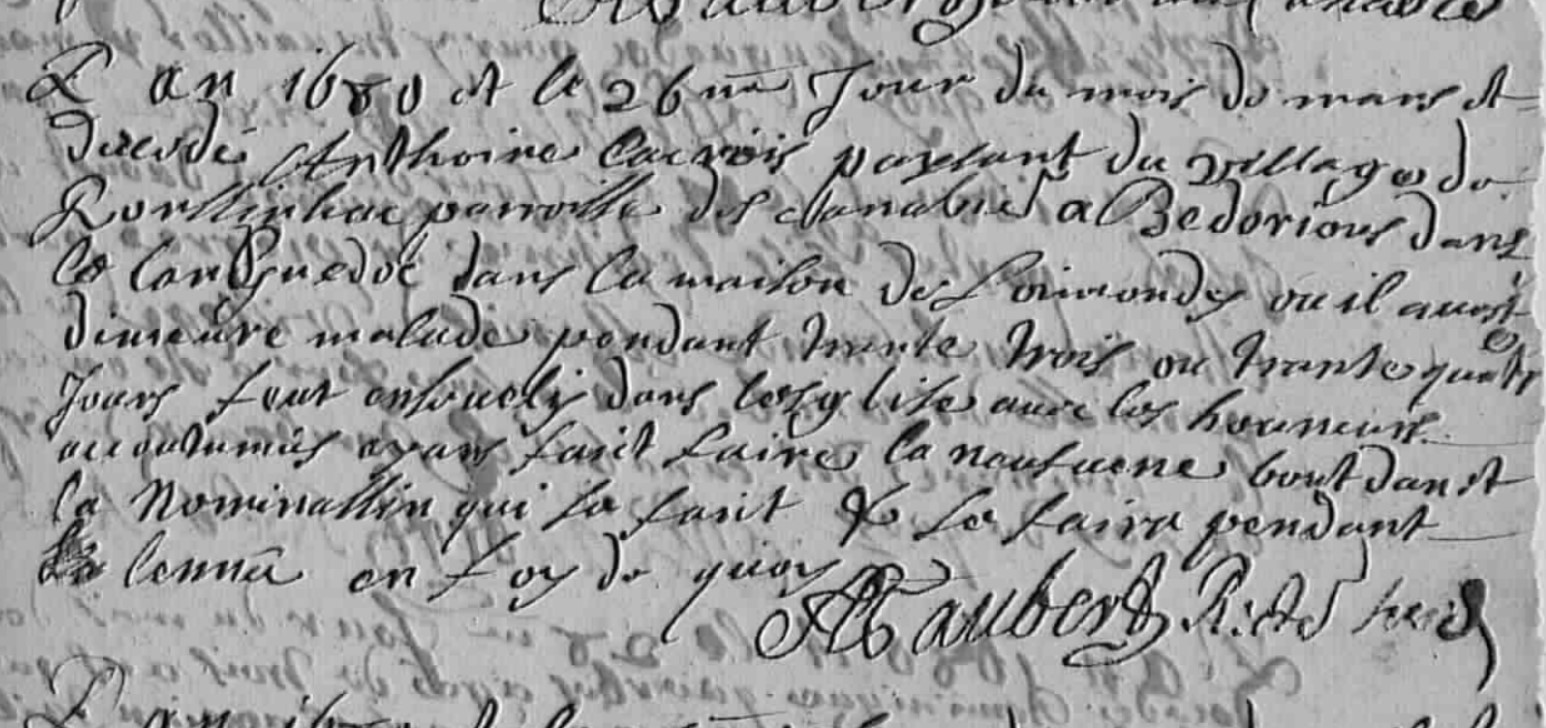 L an 1680 et le 26me Jour du mois de mars et
decede Anthoine Lacrois paysant du village de
paroisse des a Bedorious dans
le Languedoc dans la maison des ou il avoit
dimeure malade pendant trente trois ou trante quatre
Jours feut ensevely dans lesglise avec les honneurs
accoutumés ayans faict faire la neufvene bout dan et
la Nominattin qui se faict & se faira pendant
lennee en foy de quoy
Jaubert
L an 16